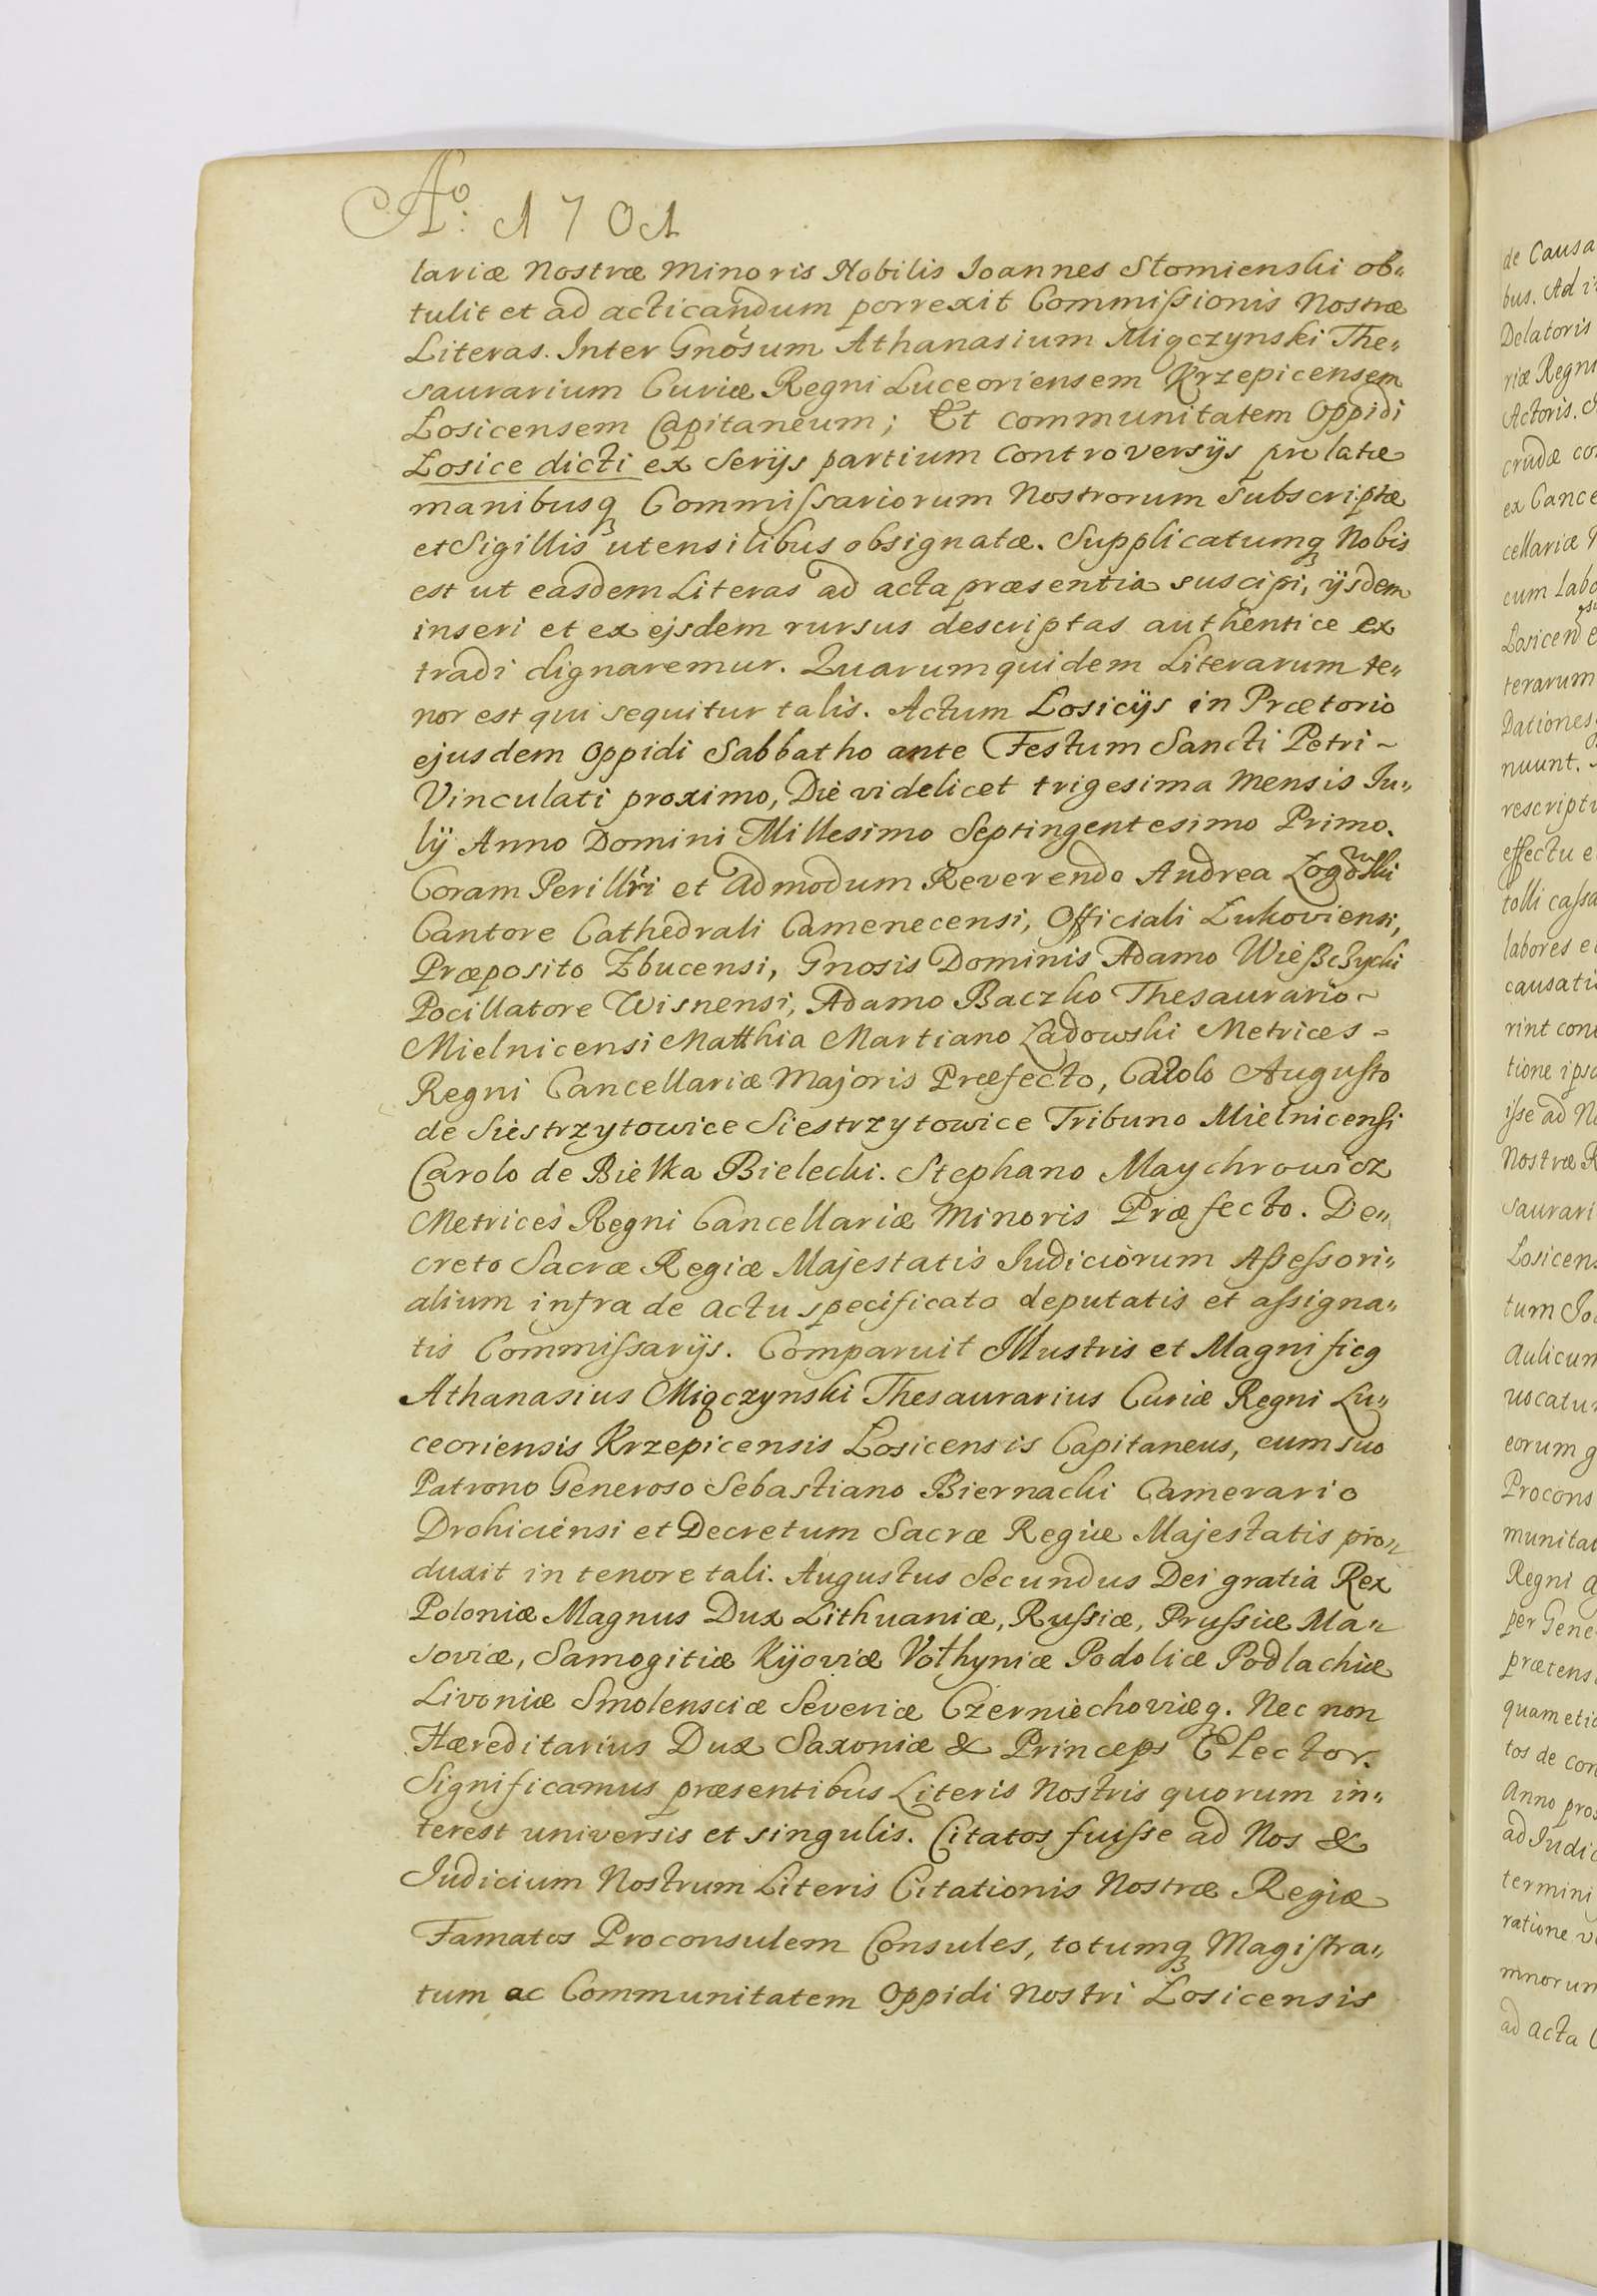 Ao: 1701
lariæ Nostræ Minoris Nobilis Joannes Stomienski ob„
tulit et ad acticandum porrexit Commißionis Nostræ
Literas. Inter Gnosum Athanasium Miączynski The„
saurarium Curiæ Regni Luceoriensem Krzepicensem
Losicensem Capitaneum; Et Communitatem Oppidi
Losice dicti ex Serijs partium Controversijs prolatæ
manibusq Commißariorum Nostrorum Subscriptæ
et Sigillis utensilibus obsignatæ. Supplicatumq Nobis
est ut easdem Literas ad acta præsentia suscipi, ijsdem
inseri et ex ejsdem rursus descriptas authentice ex
tradi dignaremur. Quarumquidem Literarum te„
nor est qui sequitur talis. Actum Losicijs in Prætorio
ejusdem Oppidi Sabbatho ante Festum Sancti Petri ~
Vinculati proximo, Die videlicet trigesima Mensis Ju„
lij Anno Domini Millesimo Septingentesimo Primo.
Coram Perillri et admodum Reverendo Andrea
Cantore Cathedrali Camenecensi, Officiali Lukoviensi,
Præposito Zbucensi, Gnosis Dominis Adamo
Pocillatore Wisnensi, Adamo Baczko Thesaurario ~
Mielnicensi Matthia Martiano Ladowski Metrices -
Regni Cancellariæ Majoris Præfecto, Carolo Augusto
de Siestrzytowice Siestrzytowice Tribuno Mielnicensi
Carolo de Bielka Bielecki. Stephano Maychrowicz
Metrices Regni Cancellariæ Minoris Præfecto. De„
creto Sacræ Regiæ Majestatis Judiciorum Aßeßori„
alium infra de actu specificato deputatis et aßigna„
tis Commißarijs. Comparuit Illustris et Magnificq
Athanasius Miączynski Thesaurarius Curiæ Regni Lu„
ceoriensis Krzepicensis Losicensis Capitaneus, cum suo
Patrono Generoso Sebastiano Biernacki Camerario
Drohiciensi et Decretum Sacræ Regiæ Majestatis pro„
duxit in tenore tali. Augustus Secundus Dei gratia Rex
Poloniæ Magnus Dux Lithuaniæ, Rußiæ, Prußiæ Ma„
soviæ, Samogitiæ Kijoviæ Volhyniæ Podoliæ Podlachiæ
Livoniæ Smolensciæ Severiæ Czerniechoviæq. Nec non
Hæreditarius Dux Saxoniæ & Princeps Elector.
Significamus præsentibus Literis Nostris quorum in„
terest universis et singulis. Citatos fuiße ad Nos &
Judicium Nostrum Literis Citationis Nostræ Regiæ
Famatos Proconsulem Consules, totumq Magistra„
tum ac Communitatem Oppidi Nostri Losicensis
de Causa
bus. Ad
Delatoris
riæ Regni
Actoris.
crudæ
ex Cance
cellariæ
cum labo
Losicen
terarum
Dationes
nuunt.
rescripti
effectu e
tolli caßa
labores e
causati
rint con
tione ipsa
iße ad N
Nostræ R
saurari
Losicens
tum Jo
Aulicum
vocatu
eorum q
Procons
munitat
Regni a
per Gene
prætens
quam etia
tos de con
Anno pros
ad Judic
termini
ratione
mnorum
ad acta